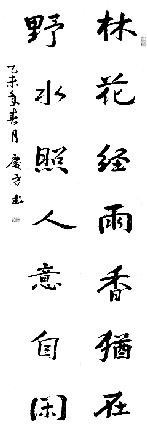 林花经雨香犹在
野水照人意自闲
乙未年春月庆方书